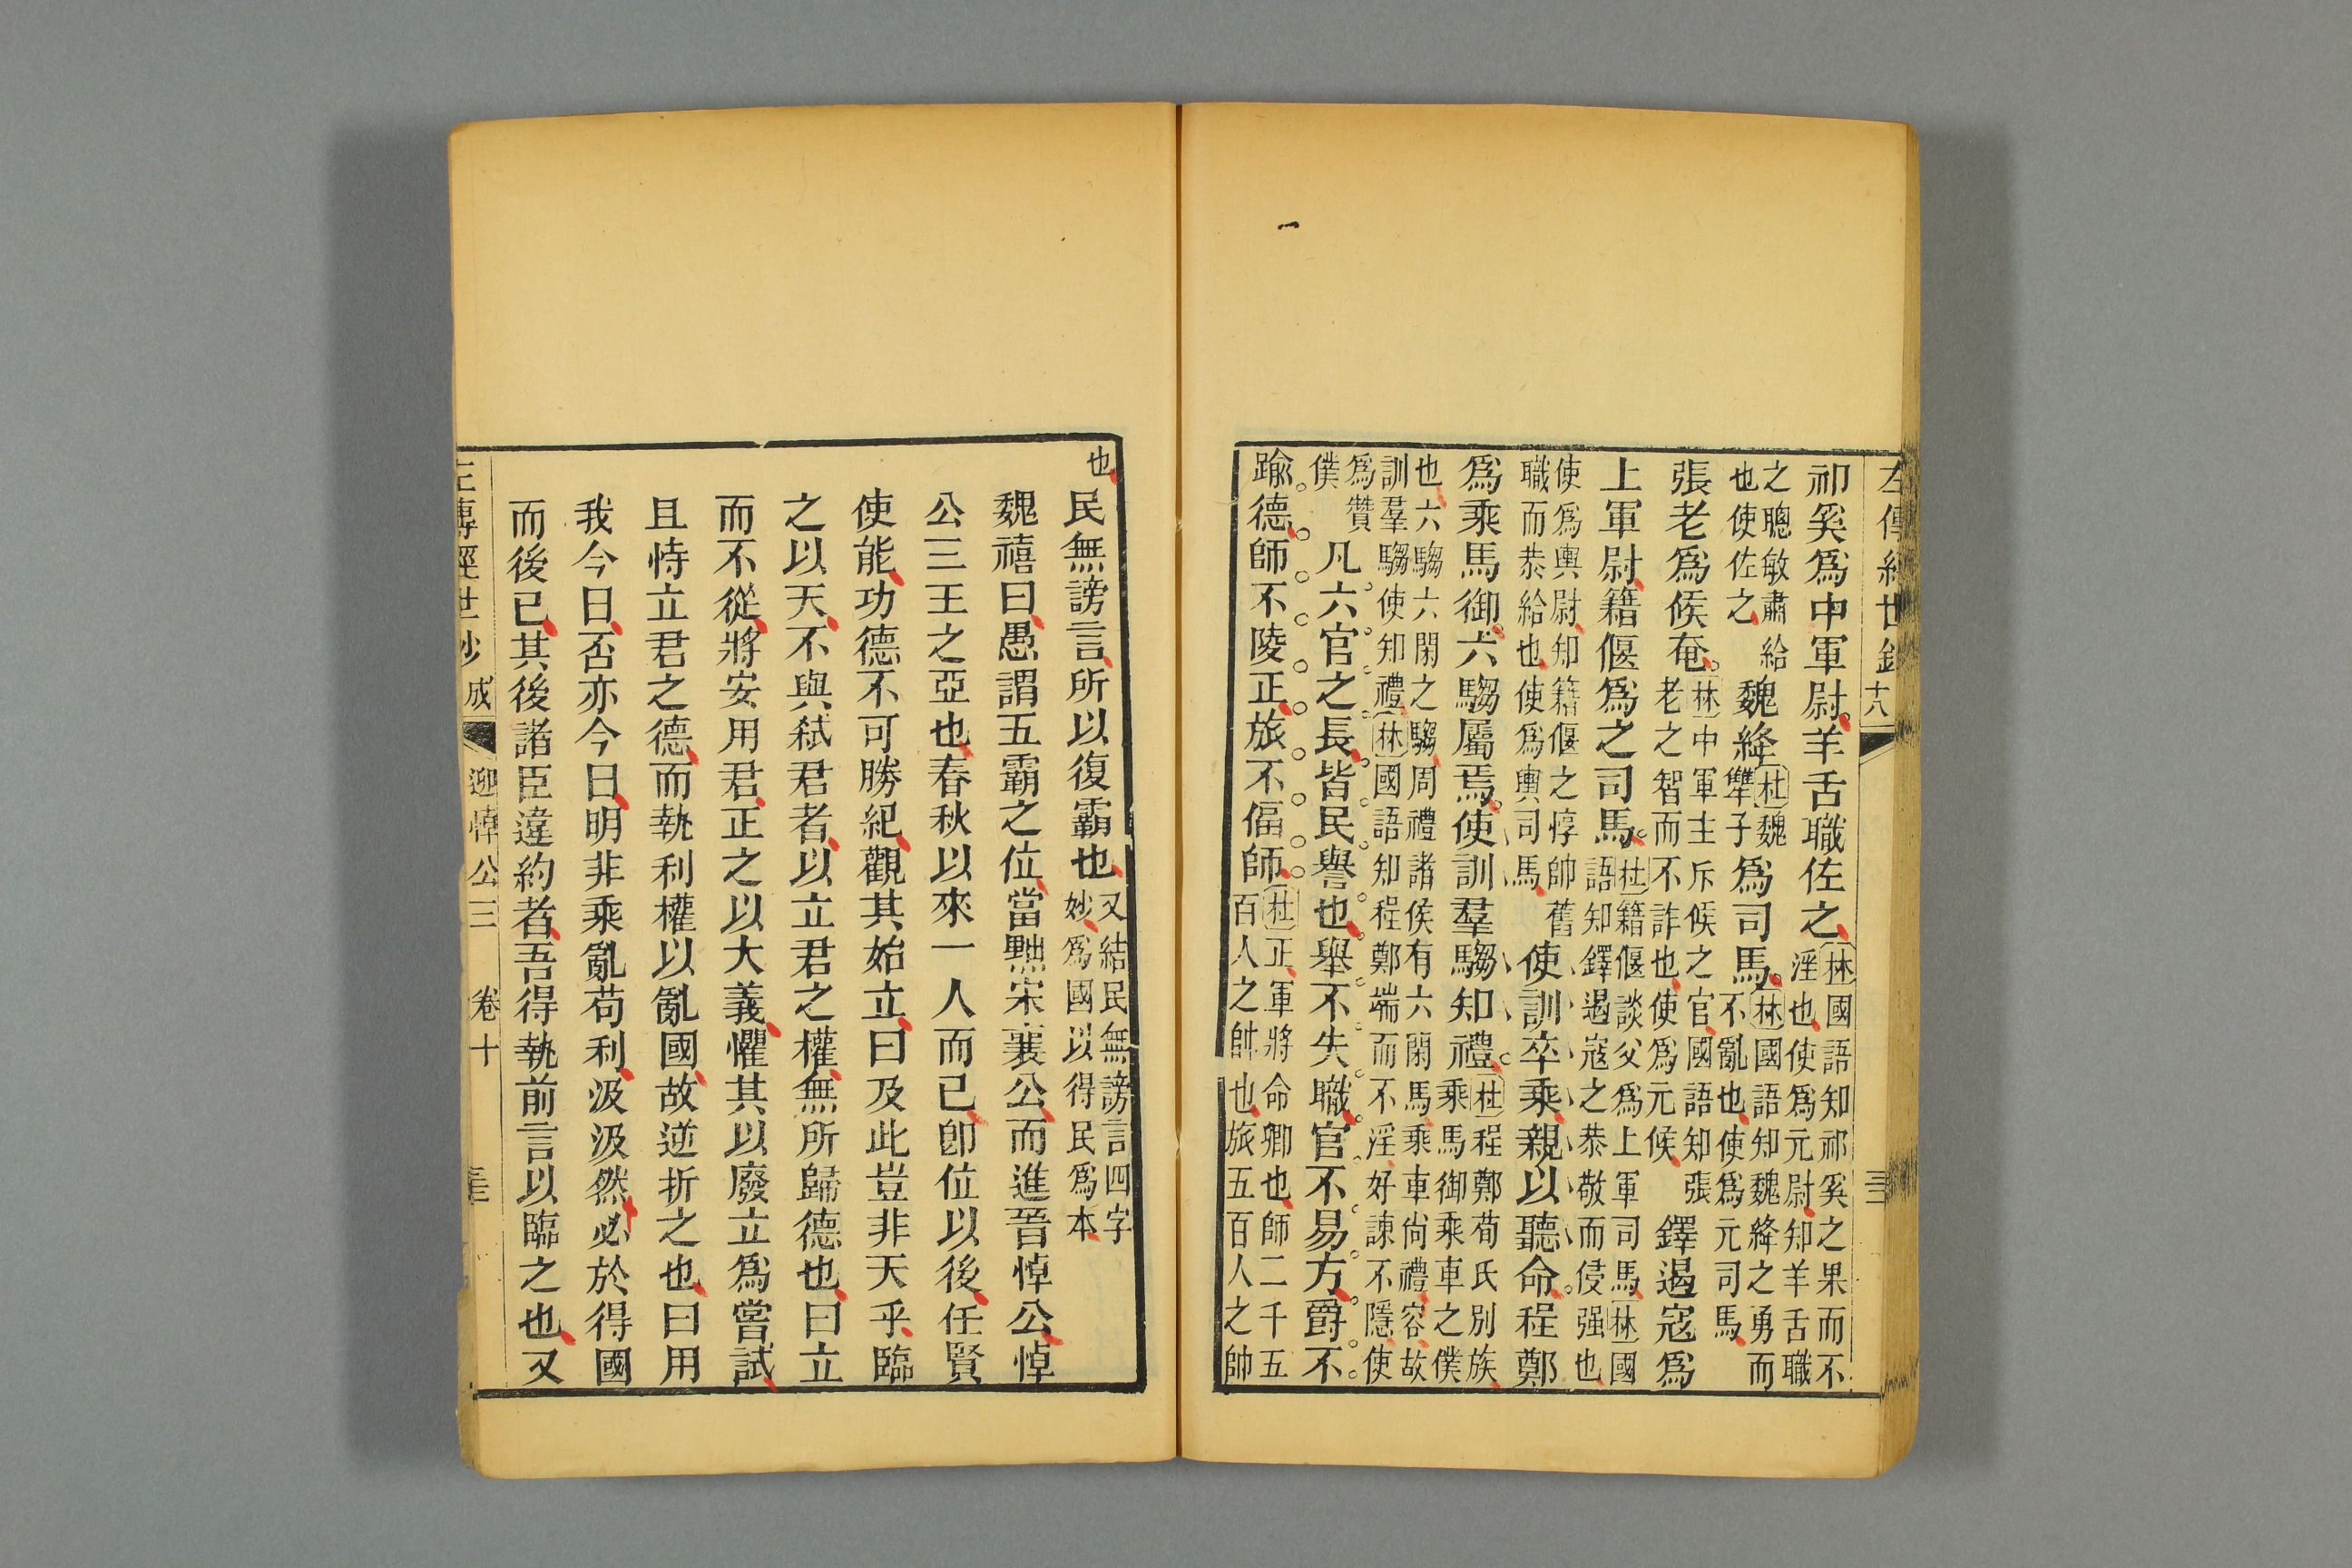 左傳經世鈔 十八
祁奚爲中軍尉羊舌職佐之林國語知祁奚之果而不淫也使爲元尉知羊舌職
之聰敏肅給也使佐之魏絳杜魏犨子爲司馬林國語知魏絳之勇而不亂也使爲元司馬
張老爲候奄林中軍主斥候之官國語知張老之智而不詐也使爲元候鐸遏寇爲
上軍尉籍偃爲之司馬杜籍偃談父爲上軍司馬林國語知鐸遏寇之恭敬而侵强也
使爲輿尉知籍偃之惇帥舊職而恭給也使爲輿司馬使訓卒乘親以聽命程鄭
爲乘馬御六騶屬焉使訓羣騶知禮杜程鄭荀氏別族乘馬御乘車之僕
也六騶六閑之騶周禮諸侯有六閑馬乘車尚禮容故訓羣騶使知禮林國語知程鄭端而不淫好諫不隱使
爲贊僕凡六官之長皆民譽也舉不失職官不易方爵不
踰德師不陵正旅不偪師杜正軍將命卿也師二千五百人之帥也旅五百人之帥
也民無謗言所以復霸也又結民無謗言四字妙爲國以得民爲本
魏禧曰愚謂五霸之位當黜宋襄公而進晉悼公悼
公三王之亞也春秋以來一人而已卽位以後任賢
使能功德不可勝紀觀其始立曰及此豈非天乎臨
之以天不與弒君者以立君之權無所歸德也曰立
而不從將安用君正之以大義懼其以廢立爲嘗試
且恃立君之德而執利權以亂國故逆折之也曰用
我今日否亦今日明非乘亂苟利汲汲然必於得國
而後已其後諸臣違約者吾得執前言以臨之也又
左傳經世鈔 成 迎悼公三 卷十